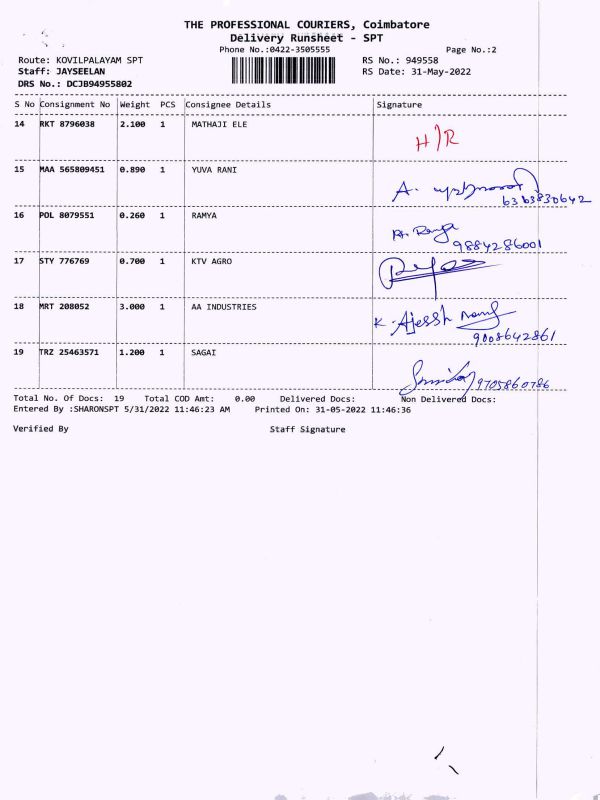 THE PROFESSIONAL COURIERS, Coimbatore
Delivery Runsheet - SPT
Phone No.:0422-3505555
Page No.:2
Route: KOVILPALAYAM SPT
RS No.: 949558
Staff: JAYSEELAN
RS Date: 31-May-2022
DRS No.: DCJB94955802
S No Consignment No Weight PCS Consignee Details Signature
14 RKT 8796038 2.100 1 MATHAJI ELE
H/R
15 MAA 565809451 0.890 1 YUVA RANI
A.
6363830642
16 POL 8079551 0.260 1 RAMYA
9884286001
17 STY 776769 0.700 1 KTV AGRO
18 MRT 208052 3.000 1 AA INDUSTRIES
K. Ajessh
9008642861
19 TRZ 25463571 1.200 1 SAGAI
9705860786
Total No. Of Docs: 19 Total COD Amt: 0.00 Delivered Docs: Non Delivered Docs:
Entered By :SHARONSPT 5/31/2022 11:46:23 AM Printed On: 31-05-2022 11:46:36
Verified By Staff Signature